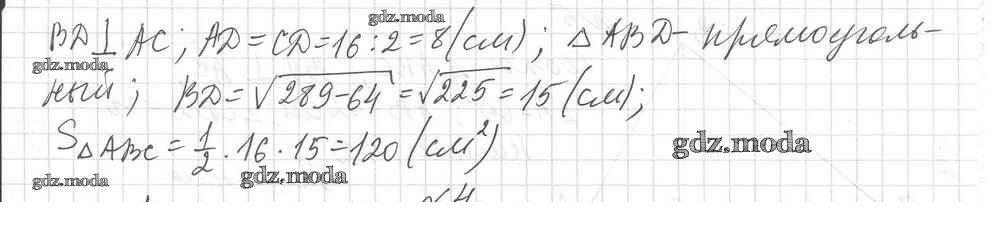 gdz.moda
BD⊥AC; AD=CD=16:2=8(см); △ABD- прямоуголь-
gdz.moda
ный; BD=√289-64=√225=15(см);
S△ABC=1/2·16·15=120(см²)
gdz.moda
gdz.moda
gdz.moda